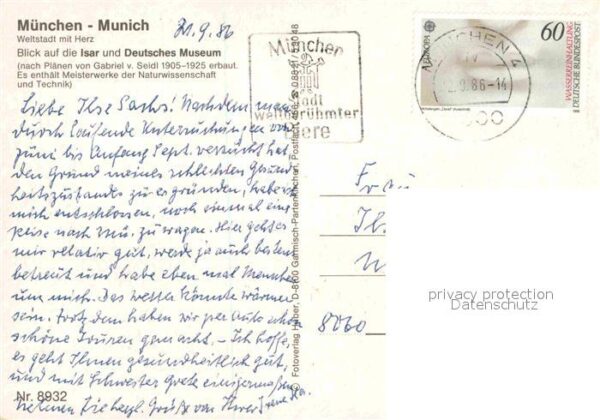 München - Munich
Weltstadt mit Herz
Blick auf die Isar und Deutsches Museum
(nach Plänen von Gabriel v. Seidl 1905–1925 erbaut.
Es enthält Meisterwerke der Naturwissenschaft
und Technik)
21.9.86
Liebe Ilse Sachs! Nachdem man
durch laufende Untersuchungen von
Juni bis Anfang Sept. versucht hat
den Grund meines schlechten Gesund-
heitszustandes zu ergründen, habe
mich entschlossen, noch einmal eine
Reise nach Mü. zu wagen. Hier geht es
mir relativ gut, werde ja auch bestens
betreut und habe eben mal Menschen
um mich. Das Wetter könnte wärmer
sein. Trotzdem haben wir per Auto schon
schöne Touren gemacht. - Ich hoffe,
es geht Ihnen gesundheitlich gut,
und mit Schwester Grete einigermaßen
Nehmen Sie herzl. Grüße von Ihrer
Nr. 8932
© Fotoverlag Huber, D-8100 Garmisch-Partenkirchen, Postfach
München
Stadt
weltberühmter
Biere
MÜNCHEN 4
.9.86-14
60
WASSERREINHALTUNG
DEUTSCHE BUNDESPOST
EUROPA
Frau
8060
privacy protection
Datenschutz